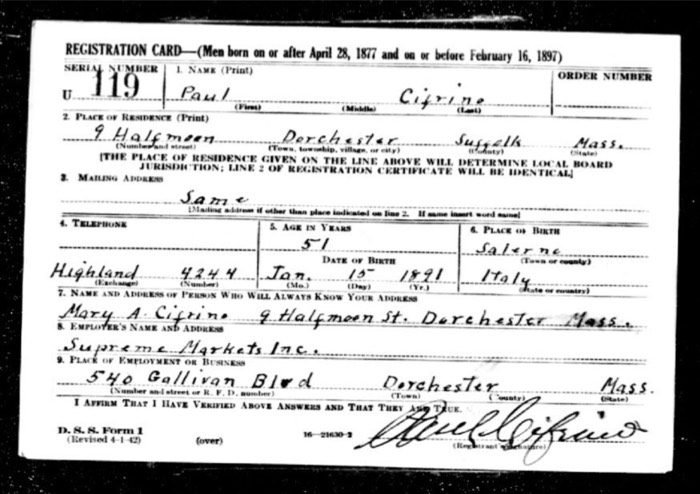 REGISTRATION CARD—(Men born on or after April 28, 1877 and on or before February 16, 1897)
SERIAL NUMBER 1. NAME (Print) ORDER NUMBER
U 119 Paul Cifrino
(First) (Middle) (Last)
2. PLACE OF RESIDENCE (Print)
9 Halfmoon Dorchester Suffolk Mass.
(Number and street) (Town, township, village, or city) (County) (State)
[THE PLACE OF RESIDENCE GIVEN ON THE LINE ABOVE WILL DETERMINE LOCAL BOARD
JURISDICTION; LINE 2 OF REGISTRATION CERTIFICATE WILL BE IDENTICAL]
3. MAILING ADDRESS
Same
[Mailing address if other than place indicated on line 2. If same insert word same]
4. TELEPHONE 5. AGE IN YEARS 6. PLACE OF BIRTH
51 Salerno
DATE OF BIRTH (Town or county)
Highland 4244 Jan. 15 1891 Italy
(Exchange) (Number) (Mo.) (Day) (Yr.) (State or country)
7. NAME AND ADDRESS OF PERSON WHO WILL ALWAYS KNOW YOUR ADDRESS
Mary A. Cifrino 9 Halfmoon St. Dorchester Mass.
8. EMPLOYER'S NAME AND ADDRESS
Supreme Markets Inc.
9. PLACE OF EMPLOYMENT OR BUSINESS
540 Gallivan Blvd Dorchester Mass.
(Number and street or R. F. D. number) (Town) (County) (State)
I AFFIRM THAT I HAVE VERIFIED ABOVE ANSWERS AND THAT THEY ARE TRUE.
D. S. S. Form 1
(Revised 4-1-42) (over) 16—21630-2 Paul Cifrino
(Registrant's signature)